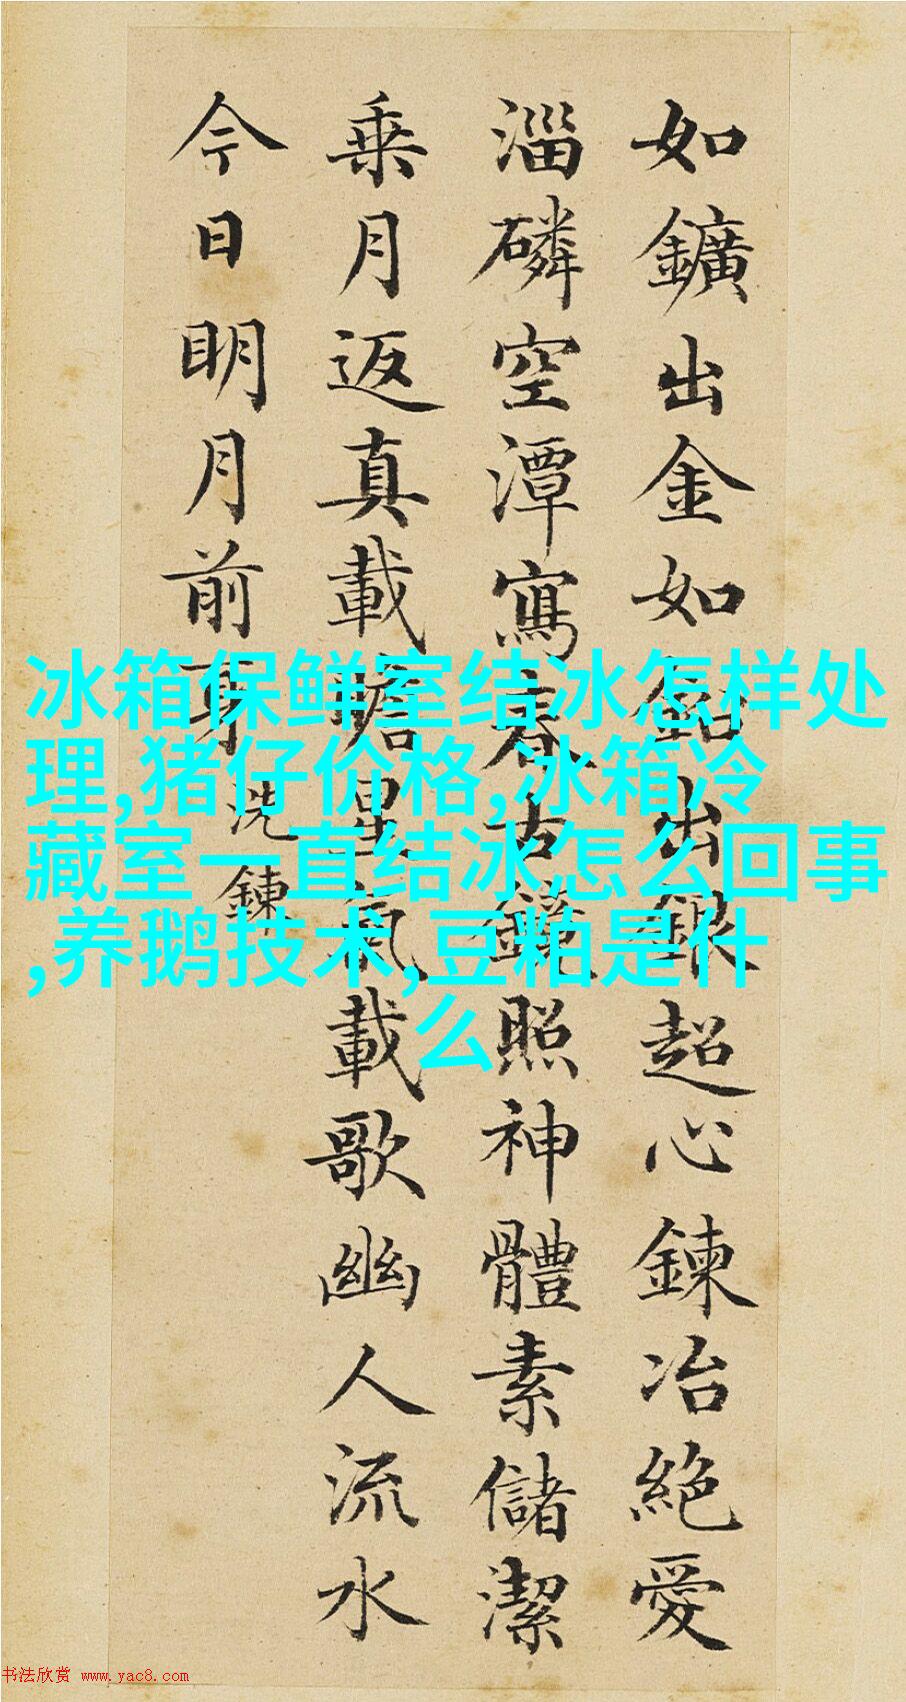 如鑛出金如鉛出銀超心鍊冶絕愛
淄磷空潭寫春古鏡照神體素儲潔
乘月返真載瞻星氣載歌幽人流水
今日明月前身
洗鍊
冰箱保鲜室结冰怎样处
理,猪仔价格,冰箱冷
藏室一直结冰怎么回事
,养鹅技术,豆粕是什
么
书法欣赏 www.yac8.com